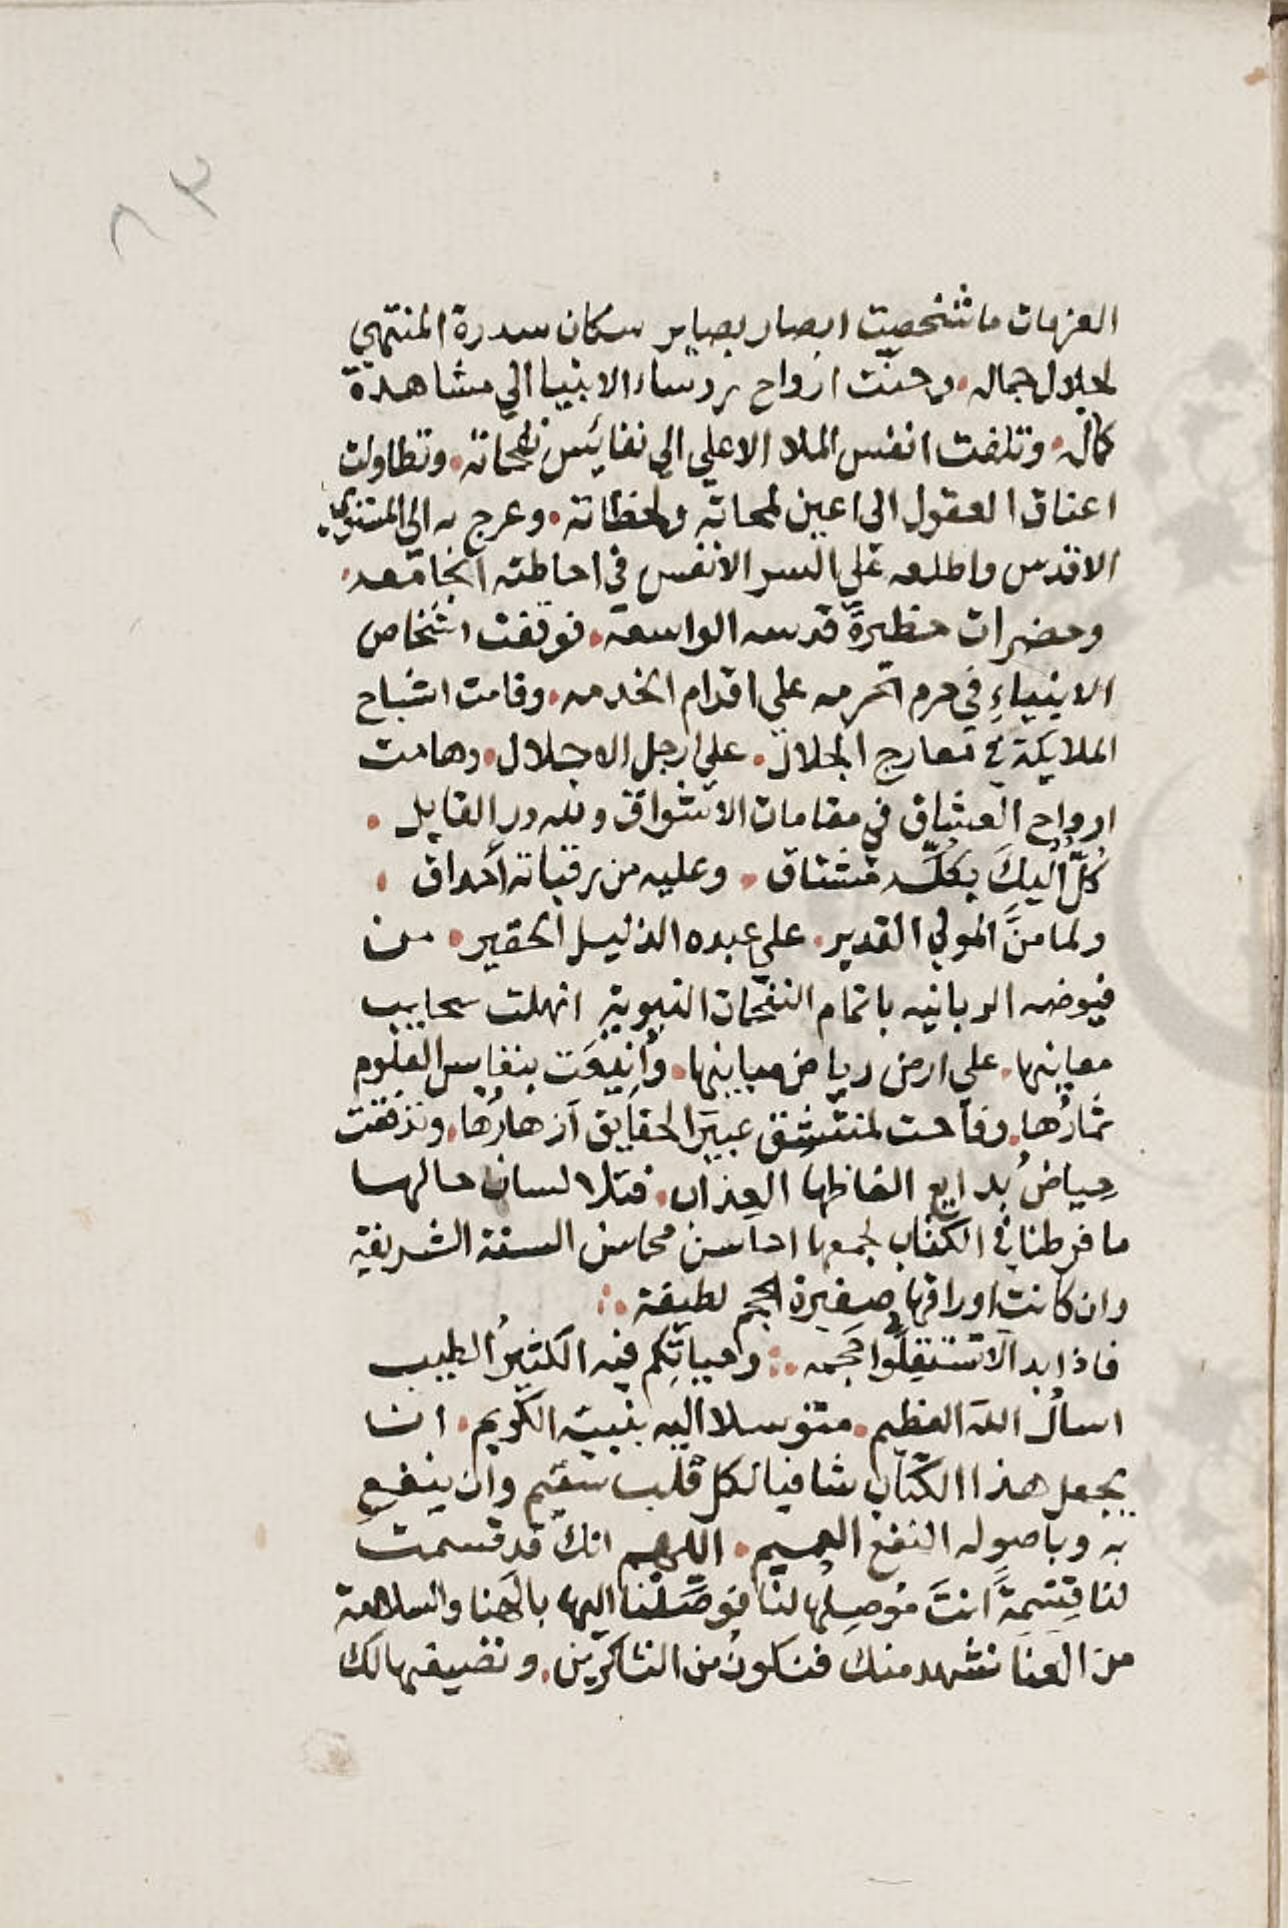 ٨٣
العزمات ما شخصت ابصار بصاير سكان سدرة المنتهي
لجلال جماله. وحنّت ارواح رؤساء الانبيا الي مشاهدة
كماله. وتلفت انفس الملاء الاعلي الي نفائس نفحاته. وتطاولت
اعناق العقول الي اعين لمحاته ولحظاته. وعرج به الي المستوي
الاقدس واطلعه علي السر الانفس في احاطته الجامعه.
وحضرات حظيرة قدسه الواسعة. فوقفت اشخاص
الانبياءِ في حرم الحرمه علي اقدام الخدمه. وقامت اشباح
الملايكة في معارج الجلال. علي ارجل الاجلال. وهامت
ارواح العشاق في مقامات الاشواق ولله در القايل.
كلٌّ اليكَ بكلّه مشتاق. وعليه من رقبائه أحداق.
ولما منَّ المولي القدير. علي عبده الذليل الحقير. من
فيوضه الربانيه باتمام النفحات النبوية انهلت سحايب
معانيها. علي ارض رياض مبانيها. وأُينعَت بنفايس العلوم
ثمارُها. وفاحت لمنتشق عبيرَ الحقايق أزهارُها. وتدفقت
حِياضُ بدايع الفاظها العِذاب. فتلا لسان حالها
ما فرطنا في الكتاب لجمعها احاسن محاسن السنة الشريفة
وان كانت اوراقها صغيرة الحجم لطيفة.
فاذا بدا لا تستقلّوا حَجمه. وحياتِكم فيه الكثيرُ الطيب
اسأل اللهَ العظيم. متوسلا اليه بنبيه الكريم. ان
يجعل هذا الكتاب شافيا لكل قلب سقيم وان ينفع
به وباصوله النفع العميم. اللهم انك قد قسمت
لنا قِسْمةً انتَ مُوصِلُها لنا فوصّلنا اليها بالهنا والسلامة
من العنا نشهد منك فنكونُ من الشاكرين. ونضيفها لك